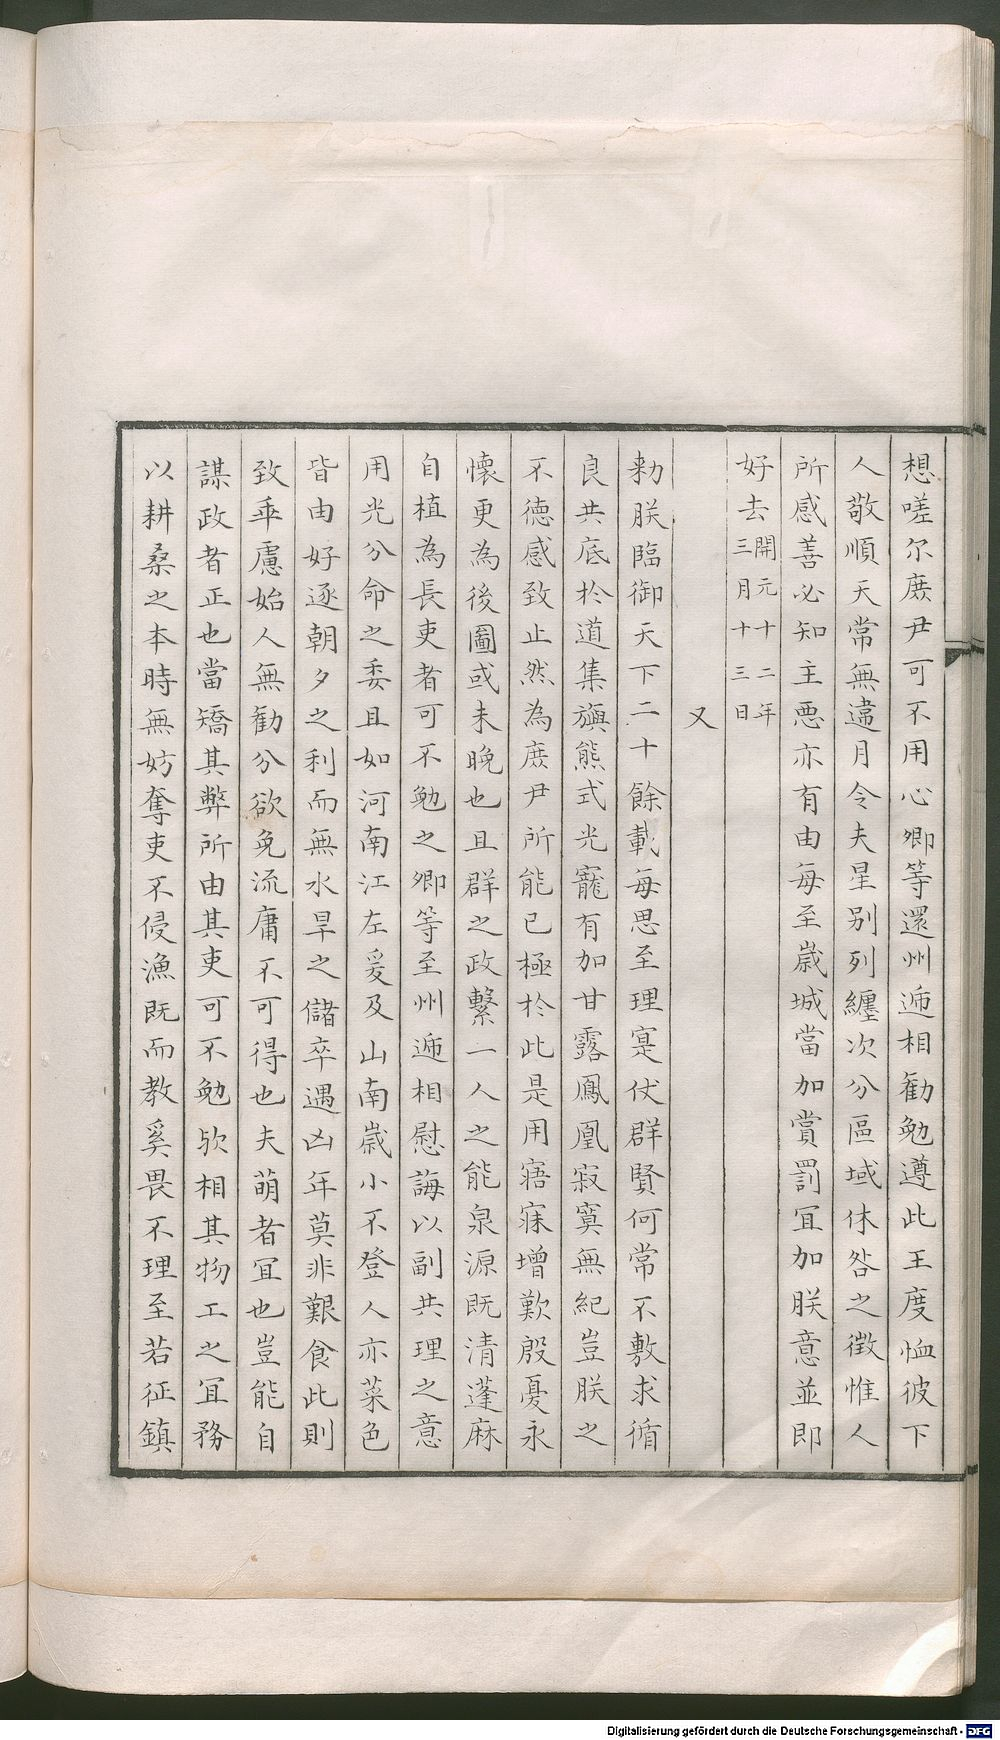 想嗟尔庶尹可不用心卿等還州遞相勸勉遵此王度恤彼下
人敬順天常無違月令夫星別列纏次分區域休咎之徴惟人
所感善必知主悪亦有由毎至歳城當加賞罰冝加朕意並即
好去開元十二年三月十三日
又
勑朕臨御天下二十餘載每思至理寔伏群賢何常不敷求循
良共底扵道集旟熊式光寵有加甘露鳳凰寂寞無紀豈朕之
不德感致止然為庶尹所能已極扵此是用寤寐增歎殷憂永
懷更為後圖或未晚也且群之政繫一人之能泉源既清蓬麻
自植為長吏者可不勉之卿等至州遞相慰誨以副共理之意
用光分命之委且如河南江左爰及山南歳小不登人亦菜色
皆由好逐朝夕之利而無水旱之儲卒遇凶年莫非艱食此則
致乖慮始人無勸分欲免流庸不可得也夫萌者冝也豈能自
謀政者正也當矯其弊所由其吏可不勉欤相其物工之冝務
以耕桑之本時無妨奪吏不侵漁既而教奚畏不理至若征鎮
Digitalisierung gefördert durch die Deutsche Forschungsgemeinschaft - DFG